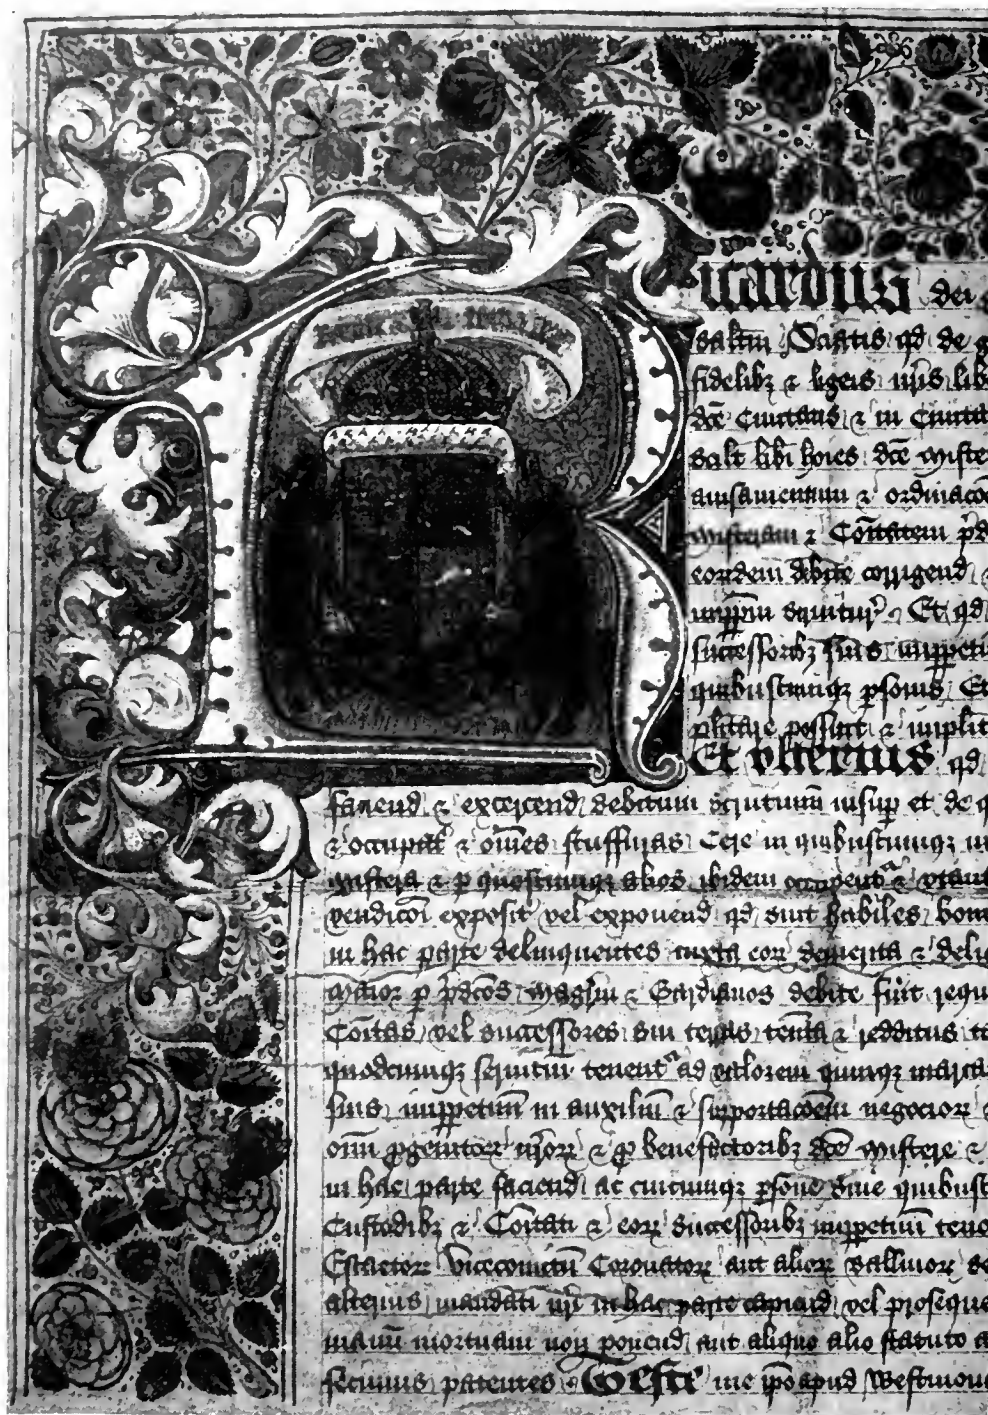 Ricardus dei
saltm Sciatis qd de
fidelibz & ligeis nris lib
dce Civitatis & in Civita
salt libi hoies dce mist
avisamentum & ordinaco
misteram & Coitatem pd
eordem debite corrigend
imppm sequitur Et qd
successoribz suis imppetu
quibuscumqz psonis Et
plitare possint & implit
Et ulterius qd
faciend & excercend debitum scrutinm insup et de
& occupat & omes stuffuras Cere in quibuscumqz
mistera & p quoscumqz alios ibidem
vendicoi exposit vel exponend qd sint habiles bon
in hac parte delinquentes iuxta eor demerita & deli
maior p pdcos magrm & Gardianos debite fuit requ
Coitas vel successores sui terras tenta & redditus
quodcumqz servitur tenent ad valorem quinqz marcar
suis imppetuu in auxiliu & supportacoem negocior
oim pgenitor nror & p benefactoribz dce mistere &
in hac parte faciend ac cuicumqz psone sive quibusc
Custodibz & Coitati & eor successoribz imppetuu
Escaetor vicecomitu Coronator aut alior Ballivor
alterius mandati nri in hac parte capiend vel proseque
manu mortuam non ponend aut aliquo alio statuto
fecimus patentes Teste me ipo apud Westmon